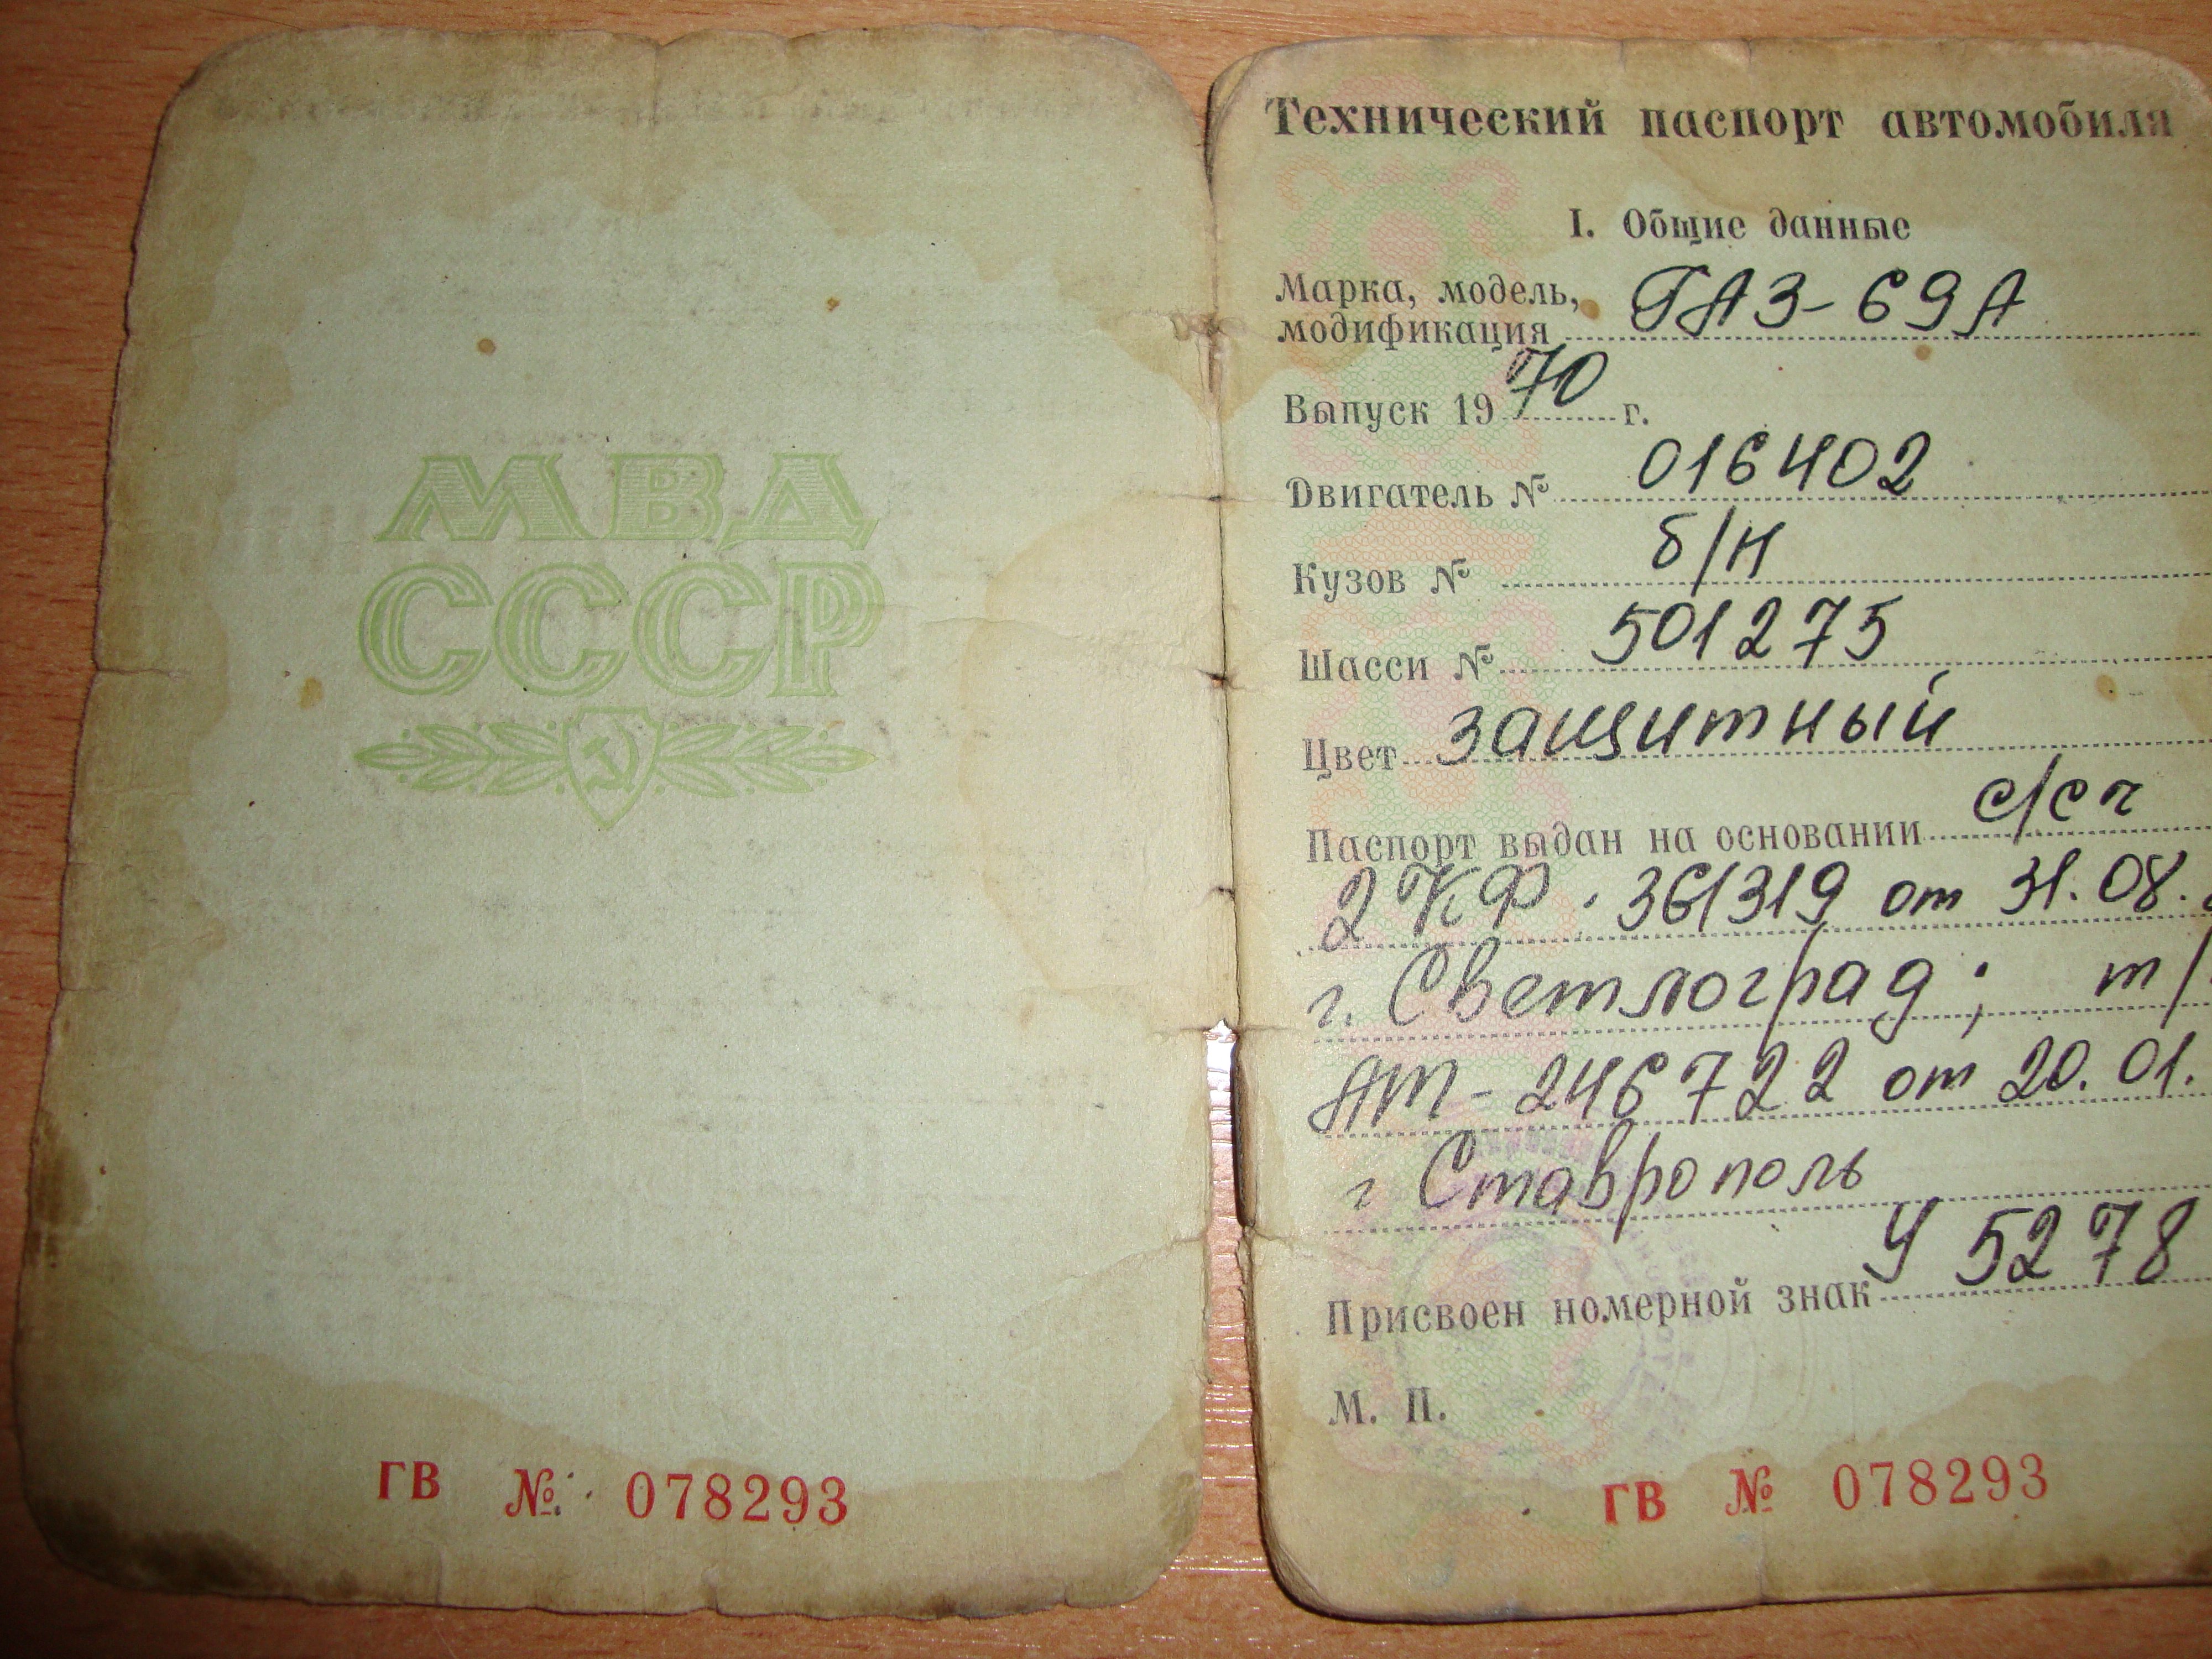 МВД
СССР
ГВ № 078293
Технический паспорт автомобиля
I. Общие данные
Марка, модель,
модификация ГАЗ-69А
Выпуск 1970 г.
Двигатель № 016402
Кузов № б/н
Шасси № 501275
Цвет защитный
Паспорт выдан на основании с/сч
2КФ. 361319 от 31.08.
г. Светлоград; т/
АТ-246722 от 20.01.
г Ставрополь
Присвоен номерной знак У 5278
М. П.
ГВ № 078293